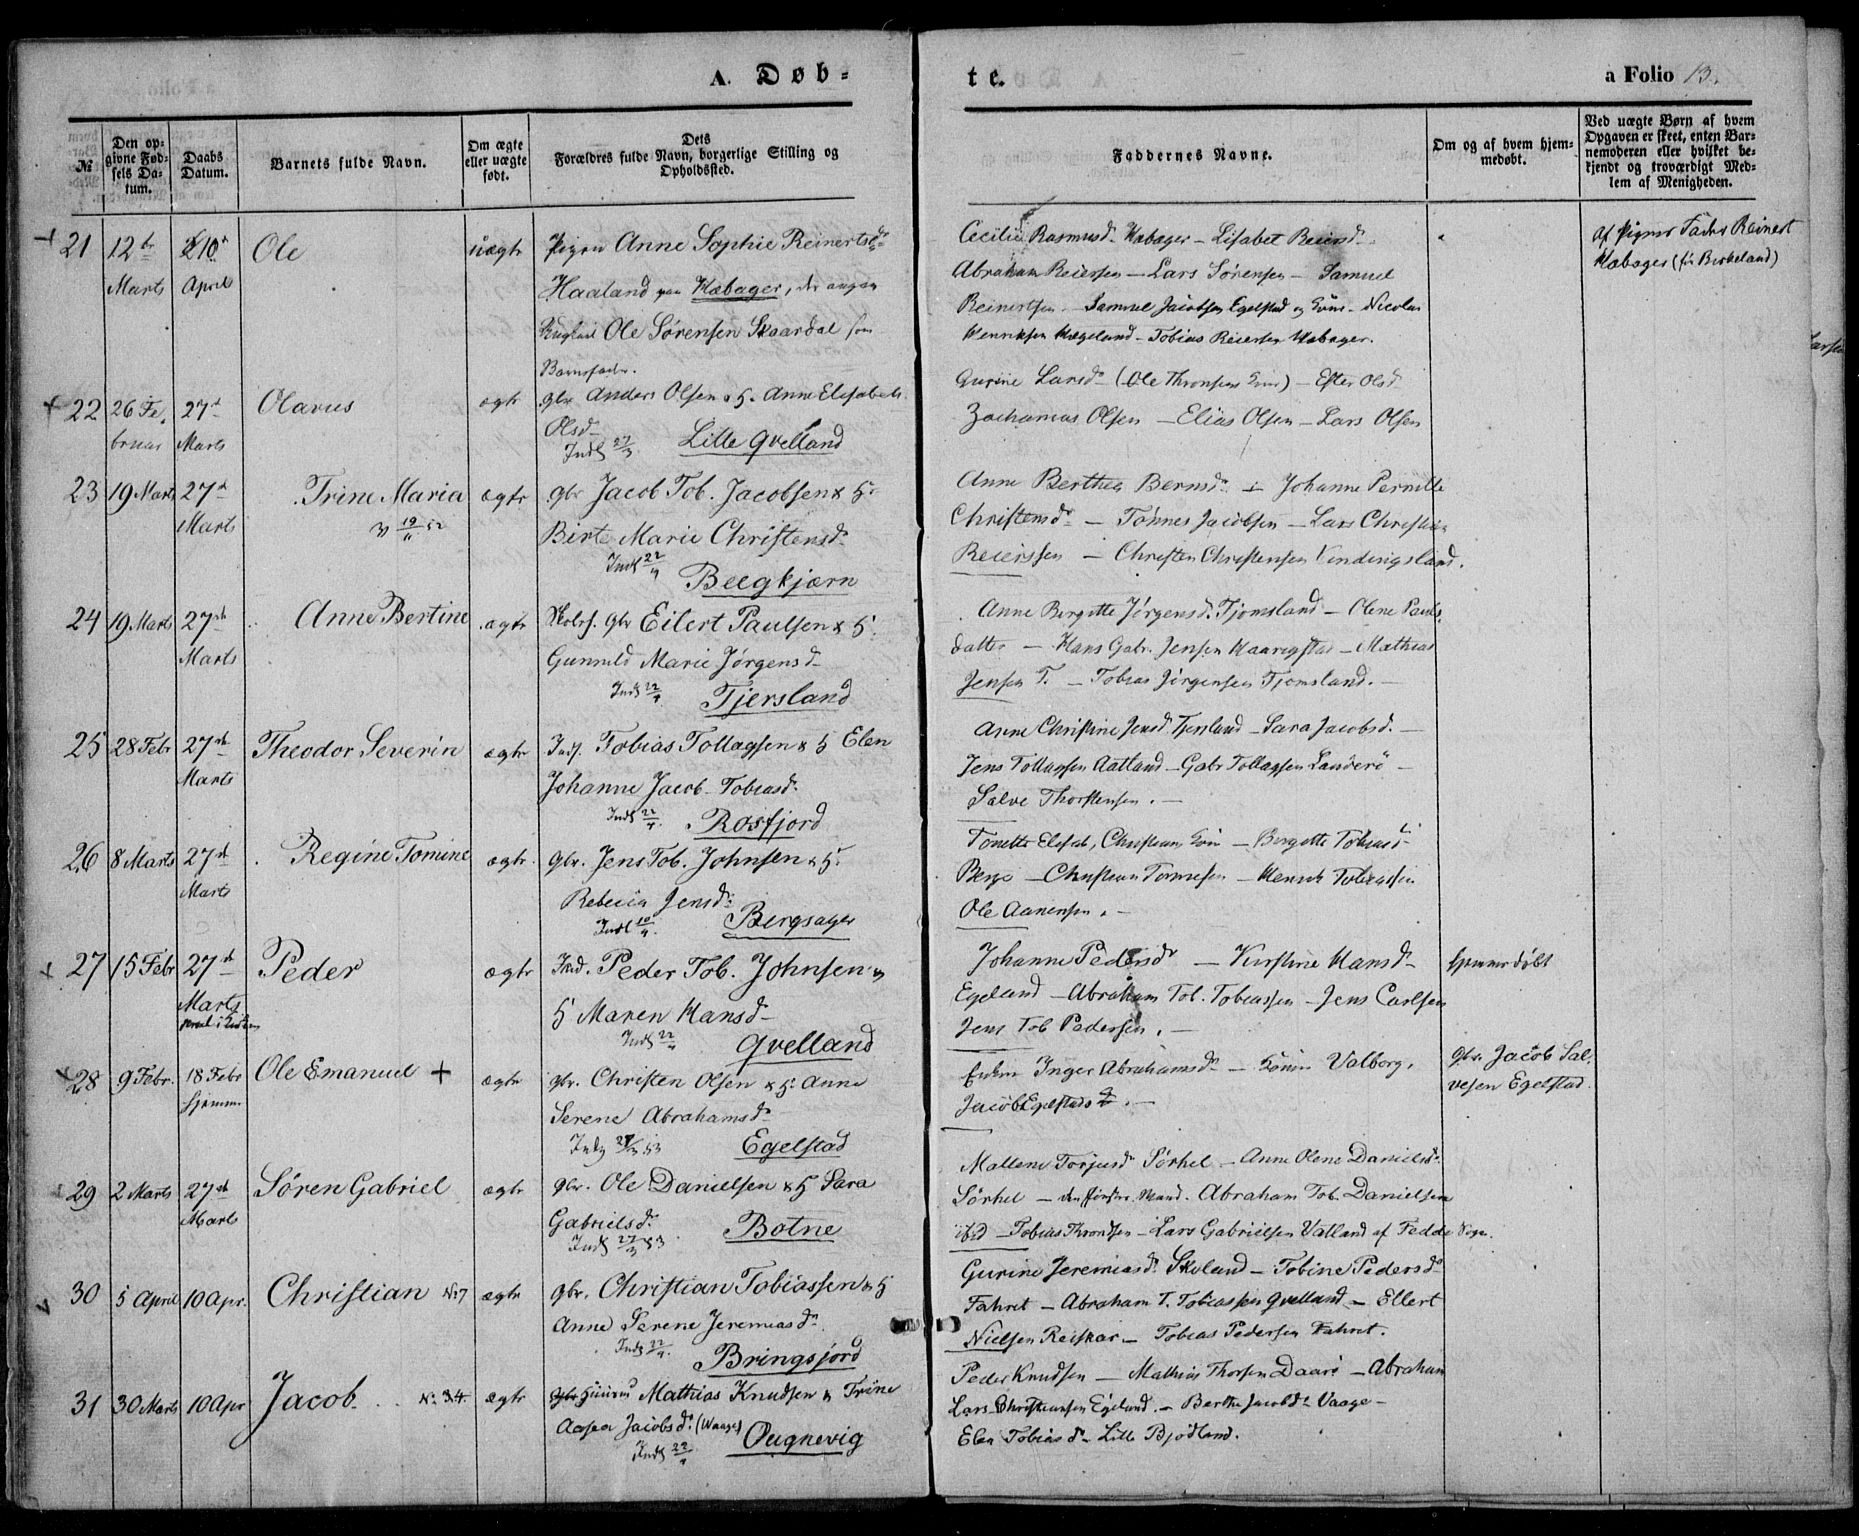 A. Døb-
te.
a Folio 13.
№
Den op-
givne Fød-
sels Da-
tum.
Daabs
Datum.
Barnets fulde Navn.
Om ægte
eller uægte
født.
Dets
Forældres fulde Navn, borgerlige Stilling og
Opholdssted.
Faddernes Navne.
Om og af hvem hjem-
medøbt.
Ved uægte Børn af hvem
Opgaven er skeet, enten Bar-
nemoderen eller hvilket be-
kjendt og troværdigt Med-
lem af Menigheden.
21 12te Marts 10 April
Ole
uægte
Pigen Anne Sophie Reinertsdr
Haaland paa Hæbager, der angav
Ole Sørensen Skaardal som
Barnefader.
Cecilie Rasmusd. Habager - Lisabet Reiersd.
Abraham Reiersen - Lars Sørensen - Samuel
Reinertsen - Samuel Jacobsen Egelstad og - Nicolai
Henriksen Hægeland - Tobias Reiersen Habager.
af Pigens Fader Reinert
Habager (fra Birkeland)
22 26 Fe-
bruar 27d Marts
Olavus
ægte
gbr Anders Olsen & H. Anne Elisabeth
Olsd.
Indl 27/3 Lille Qvelland
Gurine Larsd. (Ole Thronsens ) - Ester Olsd
Zacharias Olsen - Elias Olsen - Lars Olsen
23 19 Marts 27d Marts
Trine Maria
ægte
gbr Jacob Tob. Jacobsen & H.
Birte Marie Christensd.
Indl 22/4 Beegkjærn
Anne Berthea Bernsd. - Johanne Pernille
Christensd. - Tønnes Jacobsen - Lars Christian
Reierssen - Christen Christensen Vindingsland.
24 19 Marts 27de Marts
Anne Bertine
ægte
gbr Eilert Paulsen & H.
Gunnild Marie Jørgensd.
Indl 22/4 Tjersland
Anne Birgitte Jørgensd. Tjomsland - Olene Pauls-
datter - Hans Gabr. Jensen Haarigstad - Mathias
Jensen T. - Tobias Jørgensen Tjomsland.
25 28 Febr 27de Marts
Theodor Severin
ægte
Inds. Tobias Tollagsen & H Elen
Johanne Jacob Tobiasd.
Indl 22/4. Rosfjord
Anne Christine Jensd. Tjersland - Sara Jacobsd. -
Jens Tollagsen Aatland - Gabr Tollagsen Landerö -
Salve Thorstensen. -
26 8 Marts 27de Marts
Regine Tomine
ægte.
gbr. Jens Tob. Johnsen & H.
Rebecca Jensd.
Indl 10/4. Bergsager
Tonette Elisab, Christians - Bergitte Tobiasd
Berge - Christian Tønnesen - Henrik Tobiassen
Ole Aanensen. -
27 15 Febr 27de
Marts
Peder
ægte
Ind. Peder Tob. Johnsen &
H Maren Hansd.
Indl 22/4 Qvelland
Johanne Pedersdr - Kirstine Hansd.
Egeland - Abraham Tob. Tobiassen - Jens Carlsen
Jens Tob Pedersen. -
hjemmedøbt
28 9 Febr. 18 Febr
hjemme
Ole Emanuel +
ægte
gbr. Christen Olsen & H. Anne
Serene Abrahamsd.
Indl 27/3 53 Egelstad
Enken Inger Abrahamsdr - Valborg.
Jacob Egelstads. -
gbr. Jacob Sal-
vesen Egelstad.
29 2 Marts 27de Marts
Søren Gabriel
ægte
gbr. Ole Danielsen & H Sara
Gabrielsd.
Indl 27/3 53 Botne
Mallene Torjusd. Sørhel - Anne Olene Danielsd.
Sørhel - Mand. Abraham Tob. Danielsen
- Tobias Throndsen - Lars Gabrielsen Valland af Fedde Sogn.
30 5 April 10 Apr.
Christian № 7
ægte
gbr. Christian Tobiassen & H
Anne Serene Jeremiasd.
Indl 22/4. Bringsjord
Gurine Jeremiasd. Skoland - Tobine Pedersd.
Fahret - Abraham T. Tobiassen Qvelland - Ellert
Nielsen Reiskar - Tobias Pedersen Fahret.
31 30 Marts 10 Apr
Jacob № 34.
ægte
Mathias Knudsen & Trine
Aasea Jacobsd. (Waage)
Indl 22/4 Qugnevig
Peder Knudsen - Mathias Thorsen Daarø - Abraham
Lars Christiansen Egeland. - Berthe Jacobsd. Vaage -
Elen Tobiasd. Lille Bjødland.